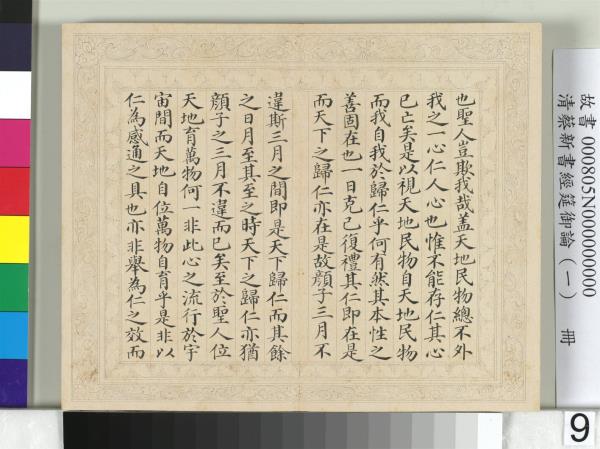 也聖人豈欺我哉蓋天地民物總不外
我之一心仁人心也惟不能存仁其心
已亡矣是以視天地民物自天地民物
而我自我於歸仁乎何有然其本性之
善固在也一日克己復禮其仁即在是
而天下之歸仁亦在是故顔子三月不
違斯三月之間即是天下歸仁而其餘
之日月至其至之時天下之歸仁亦猶
顔子之三月不違而已矣至於聖人位
天地育萬物何一非此心之流行於宇
宙間而天地自位萬物自育乎是非以
仁為感通之具也亦非舉為仁之效而
故書 000805N000000000
清蔡新書經筵御論(一) 冊
9